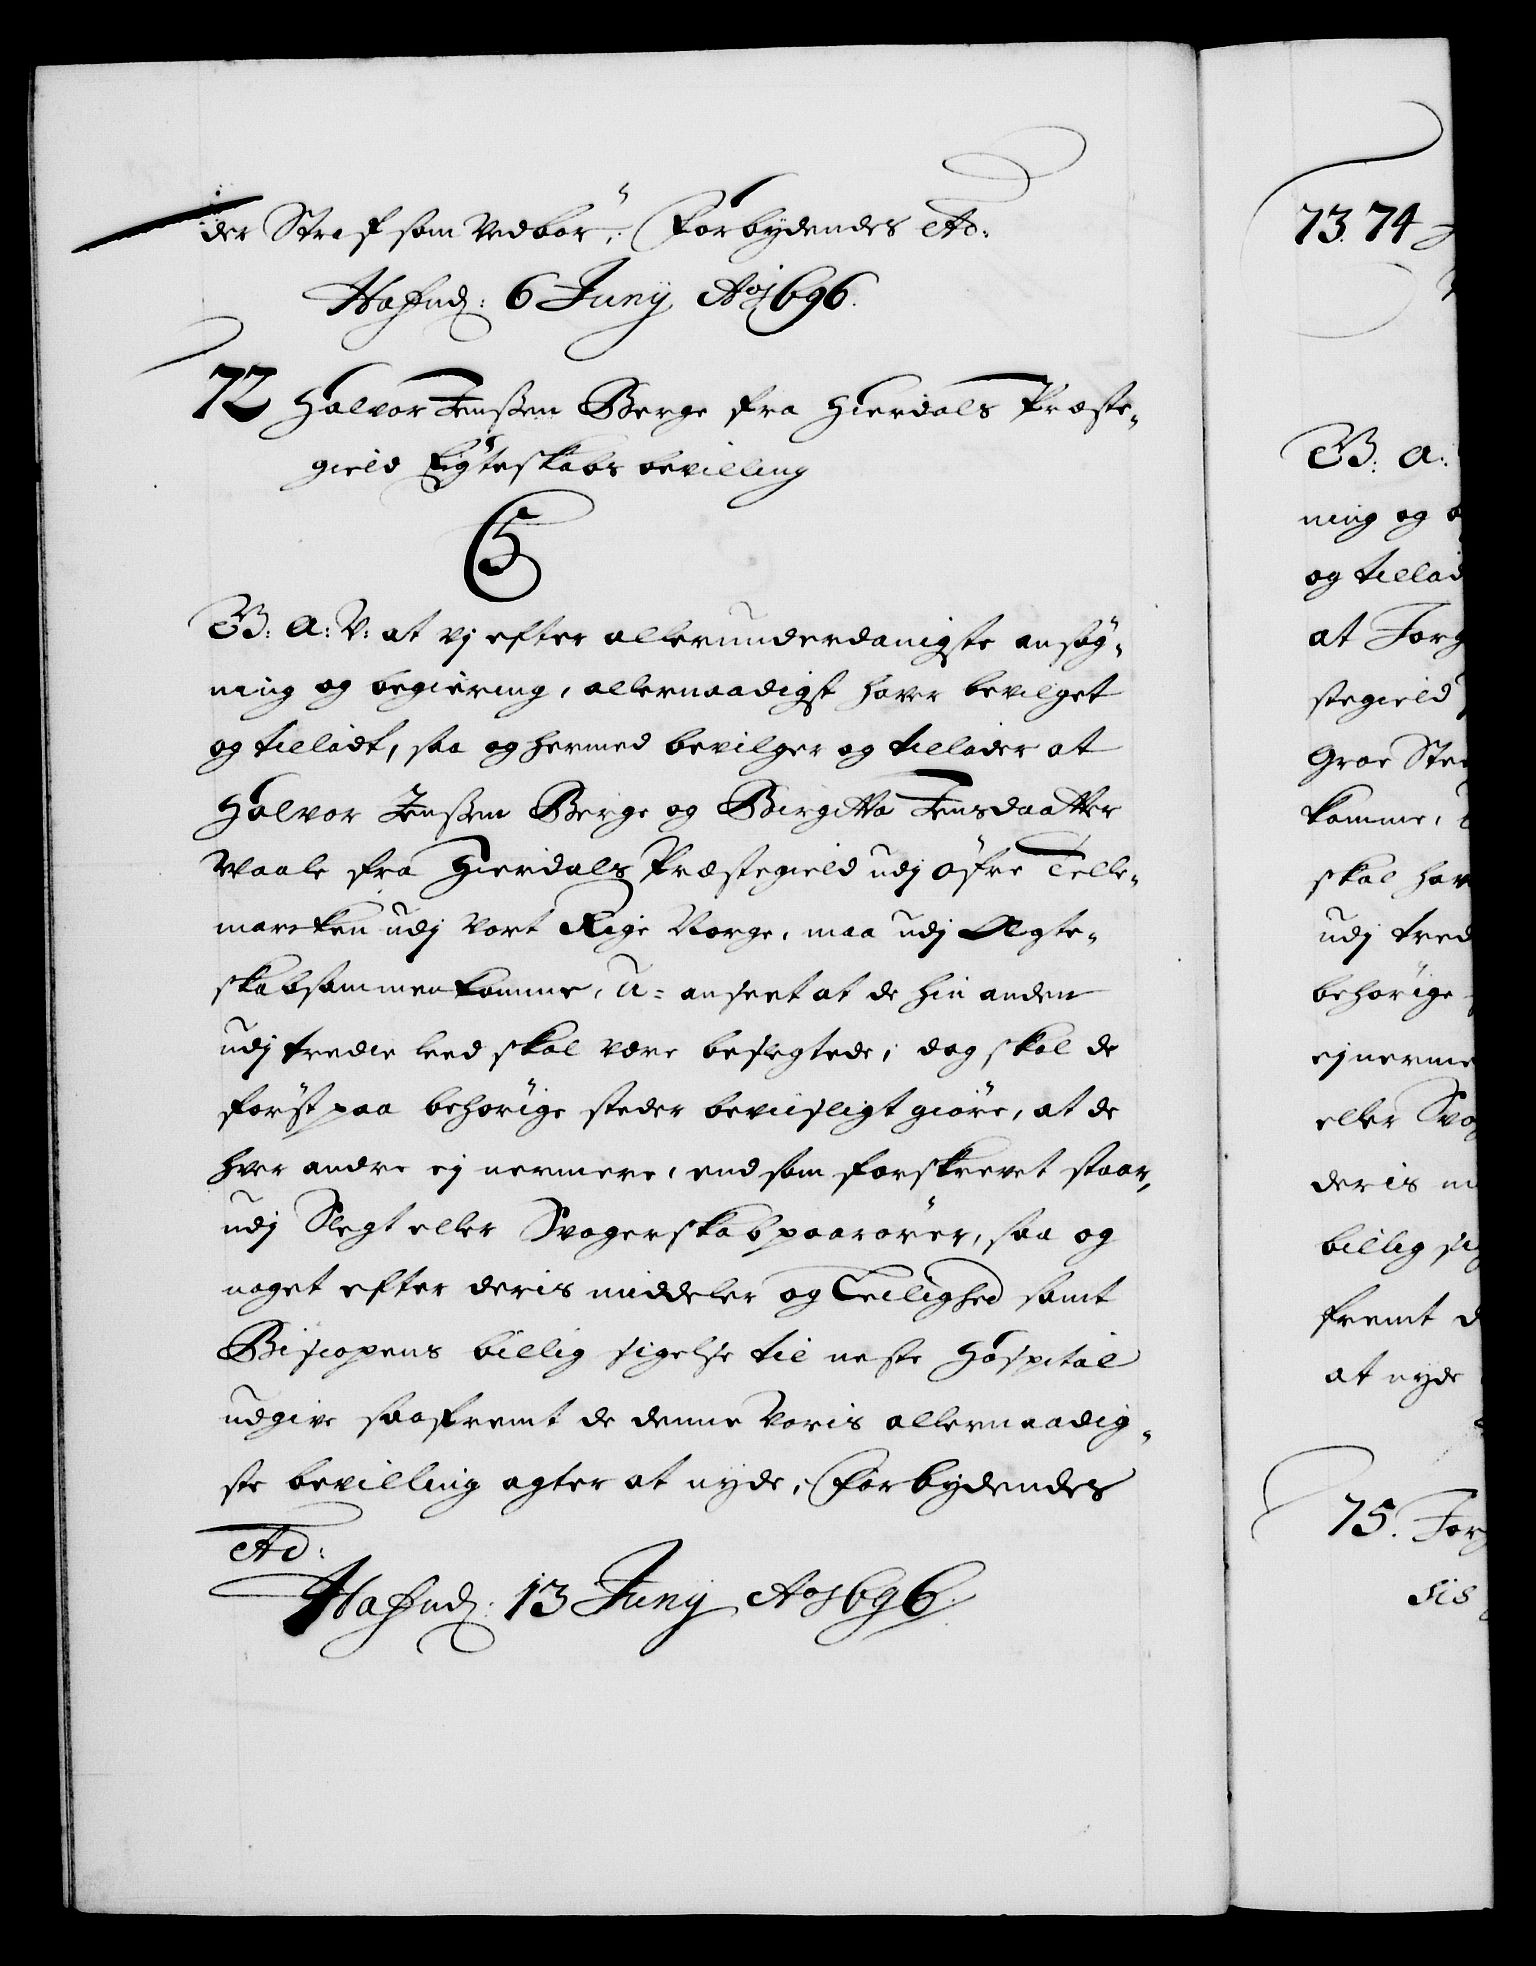 der Straf som vedbör, Forbydendes etc:
Hafnd: 6 Junÿ Ao 1696.
72 Halvor Jenssen Berge fra Hierdals Præste-
gield Egteskabs bevilling
C5
G: A: V: at vj efter allerunderdanigste ansøg-
ning og begiering, allernaadigst haver bevilget
og tilladt, saa og hermed bevilger og tillader at
Halvor Jenssen Berge og Birgitta Jensdaatter
Maale fra Hierdals Præstegield udj öfre Telle-
marcken udj vort Rige Norge, maa udj Ægte-
skab sammenkomme, u-anseet at de hin anden
udj tredie leed skal være beslegtede; dog skal de
först paa behörige steder bevisligt giöre, at de
hver andre ej nermere, end som forskrevet staar,
udj Slegt eller Svogerskab paarörer, saa og
noget efter deris middeler og Leilighed samt
Biscopens billig sigelse til neste Hospital
udgive saafremt de denne Voris allernaadig-
ste bevilling agter at nyde, Forbydendes
etc:
Hafnd: 13 Junÿ Ao 1696.
73. 74
G: A:
ning og
og tillad
at Jorg
stegield
Groe
komme,
skal hav
udj tred
behörige
ej nerme
eller Svog
deris
billig sig
fremt d
at nyde
75. Jorg